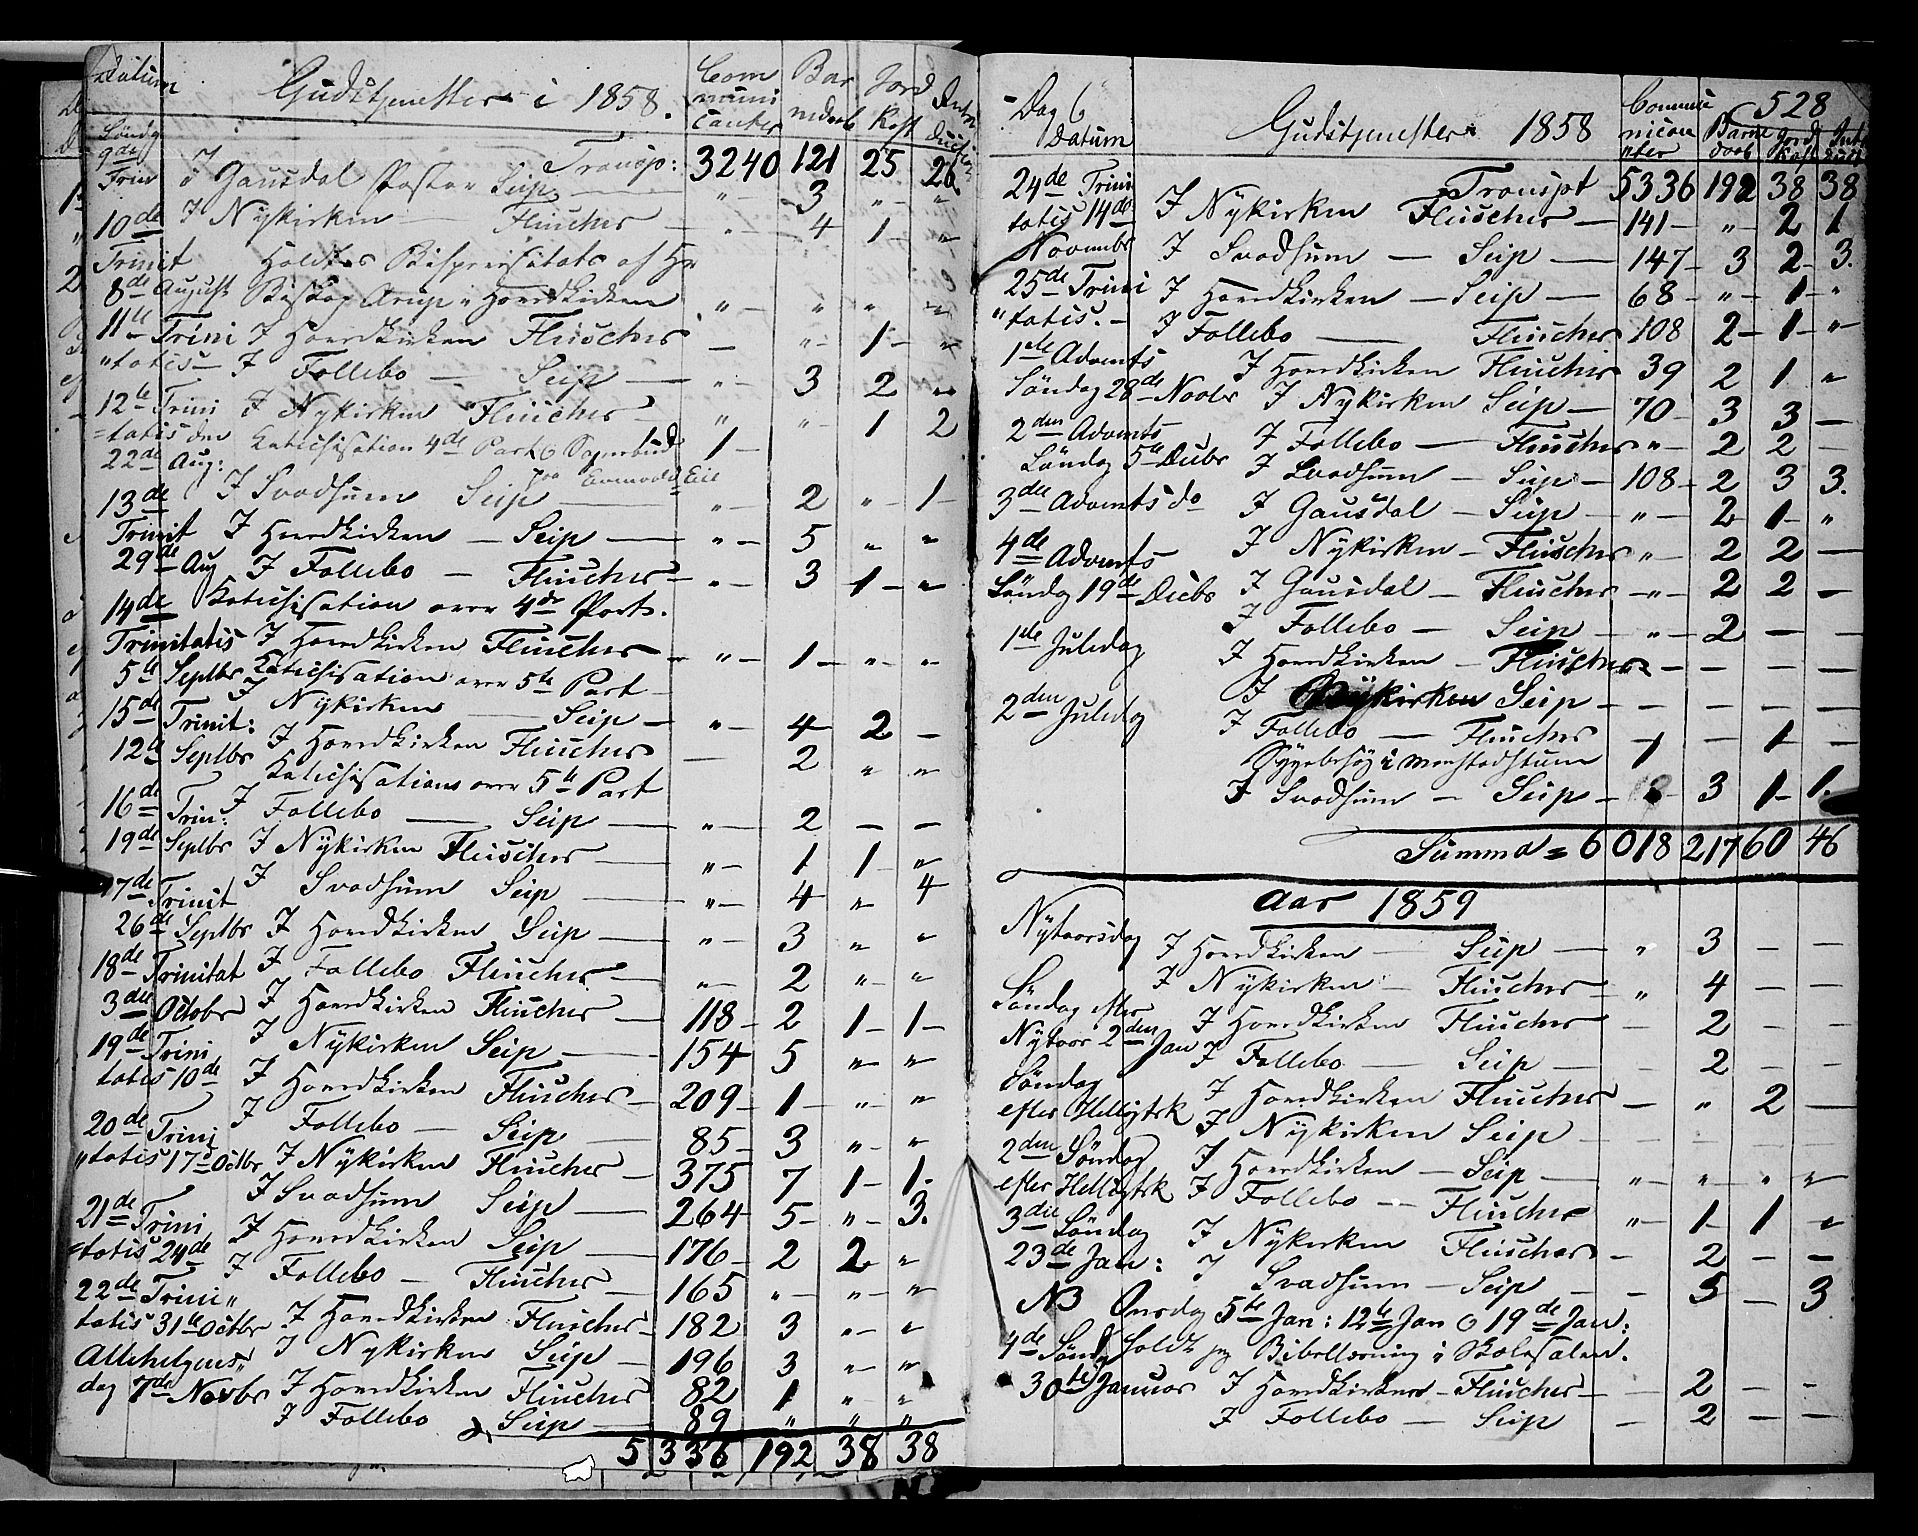 Datum Gudstjenester i 1858. Communicanter Barnedaab Jord Kast
Søndg
9de Trin Transp: 3240 121 25 26
i Gausdal Pastor Seip — " 3 " "
10de I Nykirken — Fleischer — " 4 1 "
Trinit Holdtes Bispevisitats af Hr
8de August Biskop Arup i Hovedkirken " " " "
11te Trini I Hovedkirken Fleischer — " 1 "
"tatis I Follebo — Seip — " 3 2 "
12te Trini I Nykirken Fleischer — " " 1 2
=tatis den Katechisation 4de Part 1
22de Aug:
13de I Svadsum Seip — " 2 " 1
Trinit I Hovedkirken — Seip — " 5 " "
29de Aug I Follebo — Fleischer — " 3 1 "
14de Katechisation over 4de Part.
Trinitatis I Hovedkirken Fleischer — " 1 " "
5te Septbr Katechisation over 5te Part
15de I Nykirken — Seip — " 4 2 —
Trinit: I Hovedkirken Fleischer — 2 " "
12te Septbr Katechisations over 5te Part
16de Trin: I Follebo — Seip — " 2 — —
19de Septbr I Nykirken Fleischer — " 1 1 "
17de Trinit I Svadsum Seip — " 4 " 4
26de Septbr I Hovedkirken Seip — " 3 " "
18de Trinitat I Follebo Fleischer — " 2 " "
3die October I Hovedkirken Fleischer — 118 2 1 1
19de Trini I Nykirken Seip — 154 5 " "
tatis 10de I Hovedkirken Fleischer — 209 1 " "
20de Trini I Follebo — Seip — 85 3 " "
"tatis 17de Octbr I Nykirken Fleischer — 375 7 1 1
I Svadsum Seip — 264 5 " 3.
21de Trini I Hovedkirken Seip — 176 2 2 "
=tatis 24de I Follebo — Fleischer — 165 " " "
22de Trini" I Hovedkirken Fleischer 182 3 " "
tatis 31te Octbr I Nykirken Seip — 196 3 " "
Allehelgens" I Hovedkirken Fleischer 82 1 " "
dag 7de Novbr I Follebo — Seip — 89 " " "
5336 192 38 38
Dag 6 528
Datum Gudstjenester 1858 Communicanter Barnedaab Jord Kast
24de Trini Transpt 5336 192 38 38
tatis 14de I Nykirken Fleischer — 141 " 2 1
Novembr I Svadsum — Seip — 147 3 2 3.
25de Trini I Hovedkirken — Seip — 68 " 1 "
"tatis. I Follebo — Fleischer 108 2 1 "
1ste Advents I Hovedkirken Fleischer 39 2 1 "
Søndag 28de Novbr I Nykirken Seip — 70 3 3 —
2den Advents I Follebo — Fleischer " 2 2 —
Søndag 5te Decbr I Svadsum — Seip — 108 2 3 3.
3die Advents do I Gausdal — Seip — " 2 1 "
4de Advents I Nykirken — Fleischer " 2 2 —
Søndag 19de Decbr I Gausdal — Fleischer — " 2 2 —
I Follebo — Seip — " 2 — —
1ste Juledag I Hovedkirken — Fleischer — — — —
I Nykirken Seip — — — —
2den Juledag I Follebo — Fleischer — 1 —
Sygebesøg i 1
I Svadsum — Seip — 3 1 1.
Summa = 6018 217 60 46
Aar 1859
Nytaarsdag I Hovedkirken — Seip — " 3 — —
I Nykirken — Fleischer — " 4 — —
Søndag efter I Hovedkirken Fleischer — 2 — —
Nytaar 2den Jan I Follebo — Seip — 2 — —
Søndag I Hovedkirken Fleischer — " 2 —
efter Helligtrk I Nykirken Seip — — — —
2den Søndag I Hovedkirken — Seip — " " " "
efter Helligtrk I Follebo — Fleischer " 1 1 "
3die Søndag I Nykirken Fleischer — 2 — —
23de Jan: I Svadsum — Seip — 5 — 3
NB Onsdag 5te Jan: 12te Jan o 19de Jan:
4de Sønd holdt jeg Bibellæsning i Skolesalen.
30te Januar I Hovedkirken — Fleischer — 2 — —
I Follebo — Seip — 2 — —